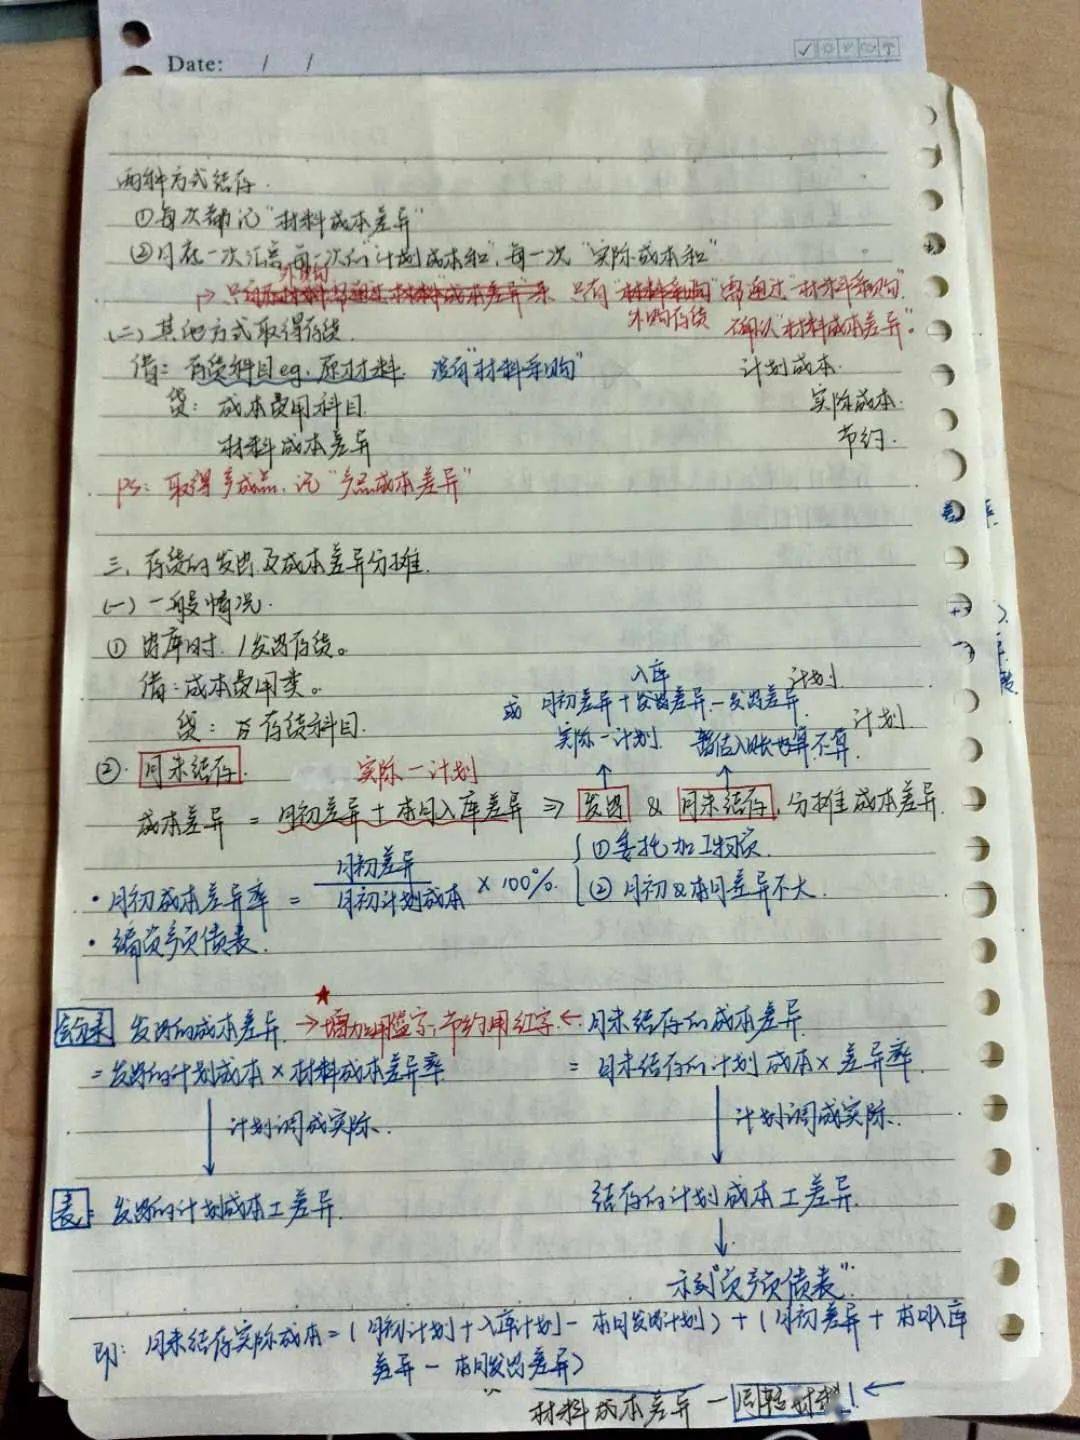 Date: / /
两种方式结存.
①每次都记"材料成本差异"
②月底一次汇总每一次的"计划成本和",每一次"实际成本和"
外购的
只有 "材料采购" 需通过"材料采购".
外购存货 不确认"材料成本差异"。
(二)其他方式取得存货.
借: 存货科目eg.原材料. 没有"材料采购" 计划成本.
贷: 成本费用科目. 实际成本.
材料成本差异 节约.
PS: 取得产成品,记"产品成本差异"
三、存货的发出及成本差异分摊.
(一)一般情况.
①出库时./发出存货。
借:成本费用类。 入库 计划.
贷: 存货科目. 或 月初差异+发出差异-发出差异. 计划.
实际-计划. 暂估入账 不算.
②. 月末结存. 实际-计划
成本差异 = 月初差异+本月入库差异 ⇒ 发出 & 月末结存,分摊成本差异.
①委托加工物资.
②月初&本月差异不大.
·月初成本差异率 = 月初差异 / 月初计划成本 × 100%.
·编资产负债表.
★
会分录 发出的成本差异. →增加用蓝字,节约用红字.← 月末结存的成本差异.
=发出的计划成本×材料成本差异率 =月末结存的计划成本×差异率.
↓计划调成实际. ↓计划调成实际.
表: 发出的计划成本±差异. 结存的计划成本±差异.
↓
示列"资产负债表".
即: 月末结存实际成本=(月初计划+入库计划-本月发出计划)+(月初差异+本月入库
差异-本月发出差异)
材料成本差异-周转材料 ←